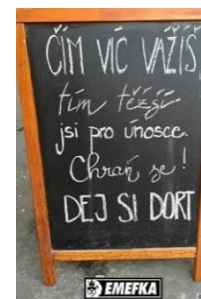 ČÍM VÍC VÁŽÍŠ
tím těžší
jsi pro únosce.
Chraň se!
DEJ SI DORT
EMEFKA